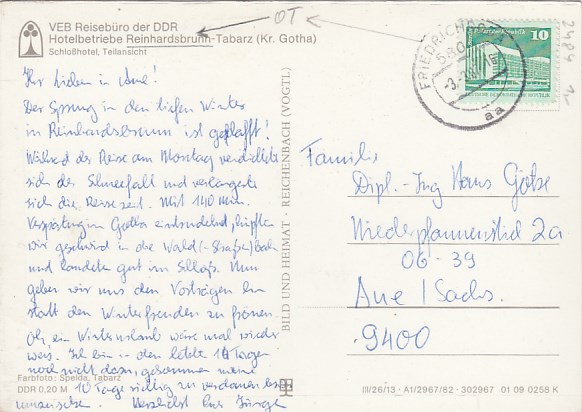 OT
VEB Reisebüro der DDR
Hotelbetriebe Reinhardsbrunn-Tabarz (Kr. Gotha)
Schloßhotel, Teilansicht
FRIEDRICHRODA
580
aa
10
2484
Ihr Lieben in Aue!
Der Sprung in den tiefen Winter
in Reinhardsbrunn ist geglückt!
Während der Reise am Montag verdichtete
sich der Schneefall und verlängerte
sich die Reisezeit. Mit 140 Min.
Verspätung in Gotha hüpften
wir geschwind in die Wald(-Straßen)bahn
und landeten gut im Schloß. Nun
geben wir uns den Vorträgen hin
statt den Winterfreuden zu frönen.
Oh, ein Winterurlaub wäre mal wieder
was. Ich bin in den letzte 14 Tagen
noch nicht dazu gekommen meine
10 Tage richtig zu
Herzlichst Eure
Farbfoto: Speida, Tabarz
DDR 0,20 M
BILD UND HEIMAT · REICHENBACH (VOGTL)
Familie
Dipl.-Ing Hans Götze
Niederpfannenstiel 2a
06-39
Aue / Sachs.
9400
III/26/13 · A1/2967/82 · 302967 01 09 0258 K